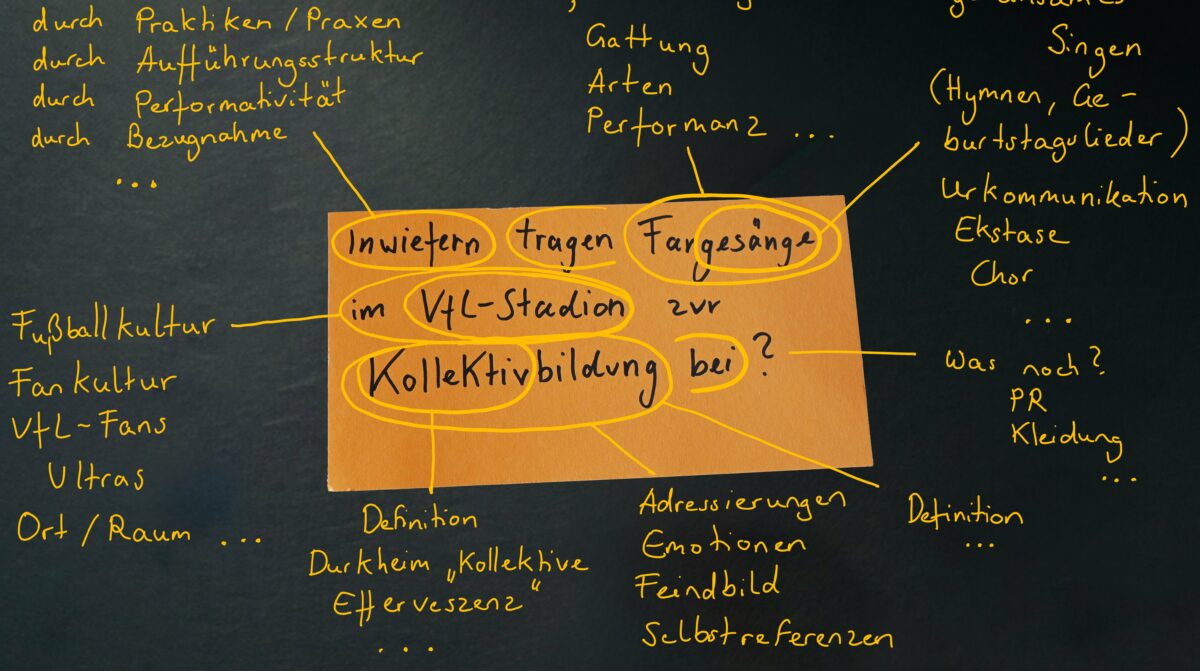 durch Praktiken / Praxen
durch Aufführungsstruktur
durch Performativität
durch Bezugnahme
...
Gattung
Arten
Performanz ...
Singen
(Hymnen, Ge-
burtstagslieder)
Urkommunikation
Ekstase
Chor
...
Inwiefern tragen Fangesänge
im VfL-Stadion zur
Kollektivbildung bei?
Fußballkultur
Fankultur
VfL-Fans
Ultras
Ort / Raum ...
Was noch?
PR
Kleidung
...
Definition
Durkheim „Kollektive
Efferveszenz“
...
Adressierungen
Emotionen
Feindbild
Selbstreferenzen
Definition
...